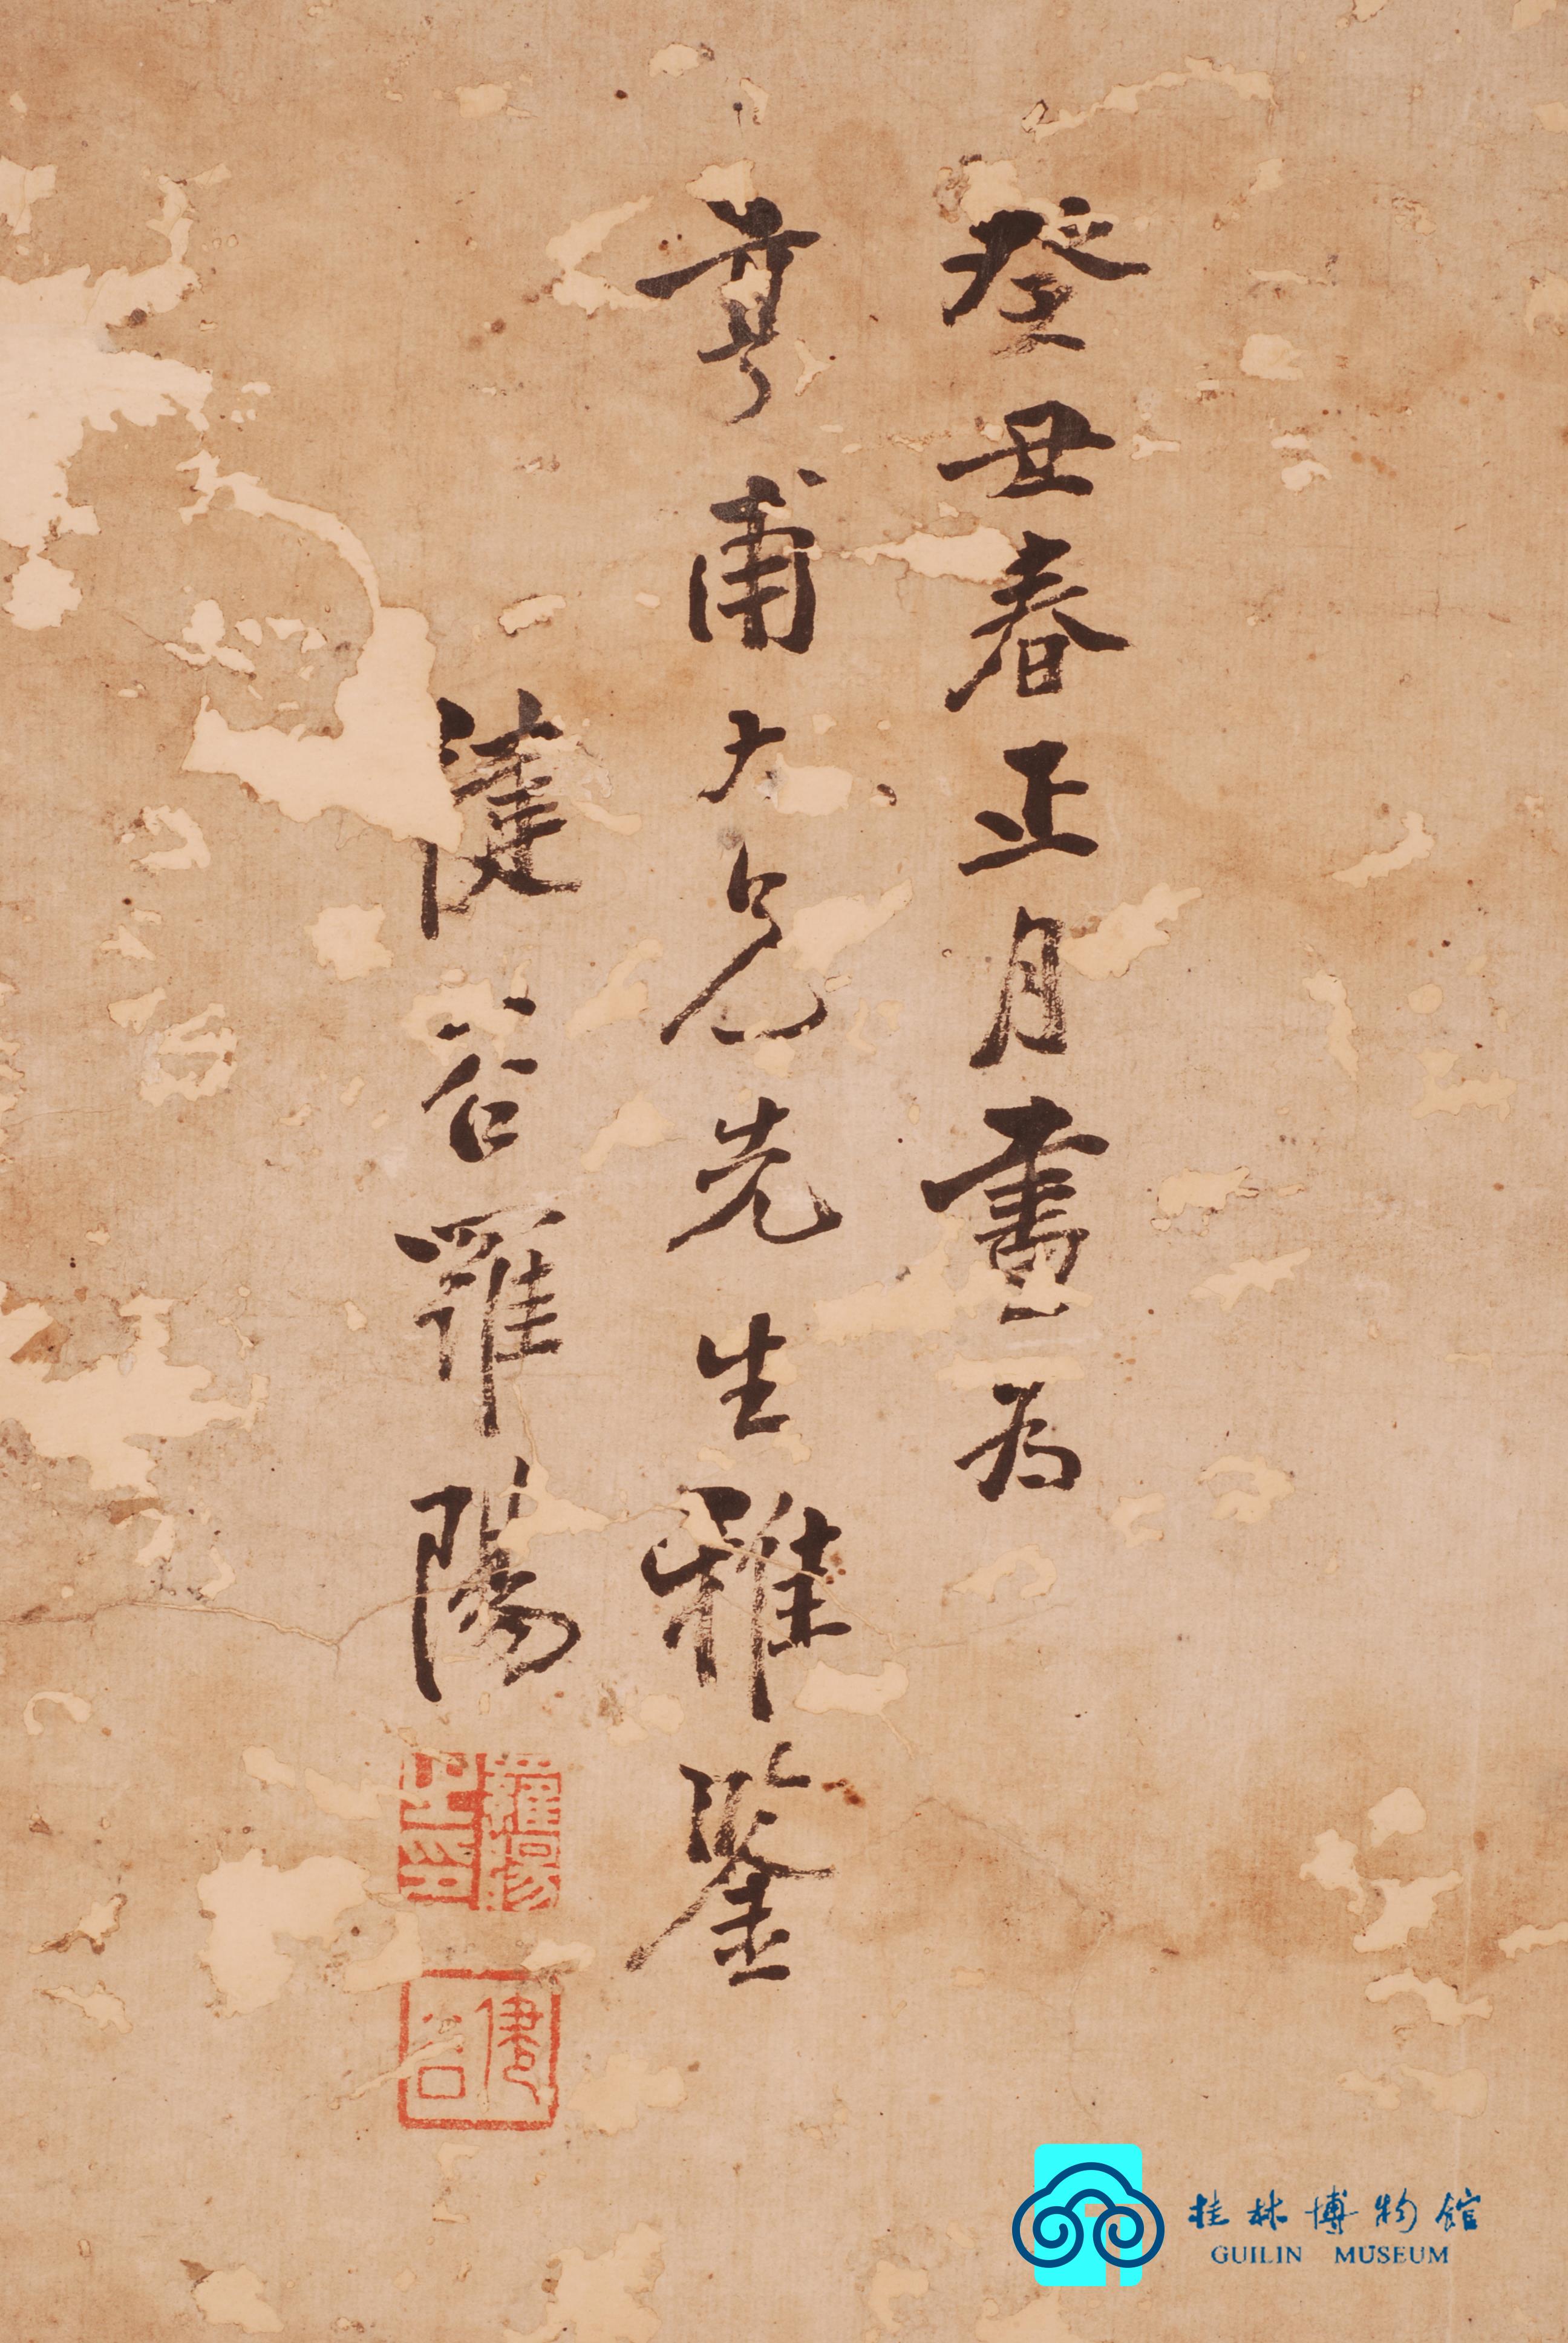 癸丑春正月畫為
甫大兄先生雅鑒
健谷羅陽
羅陽之印
健谷
桂林博物館
GUILIN MUSEUM